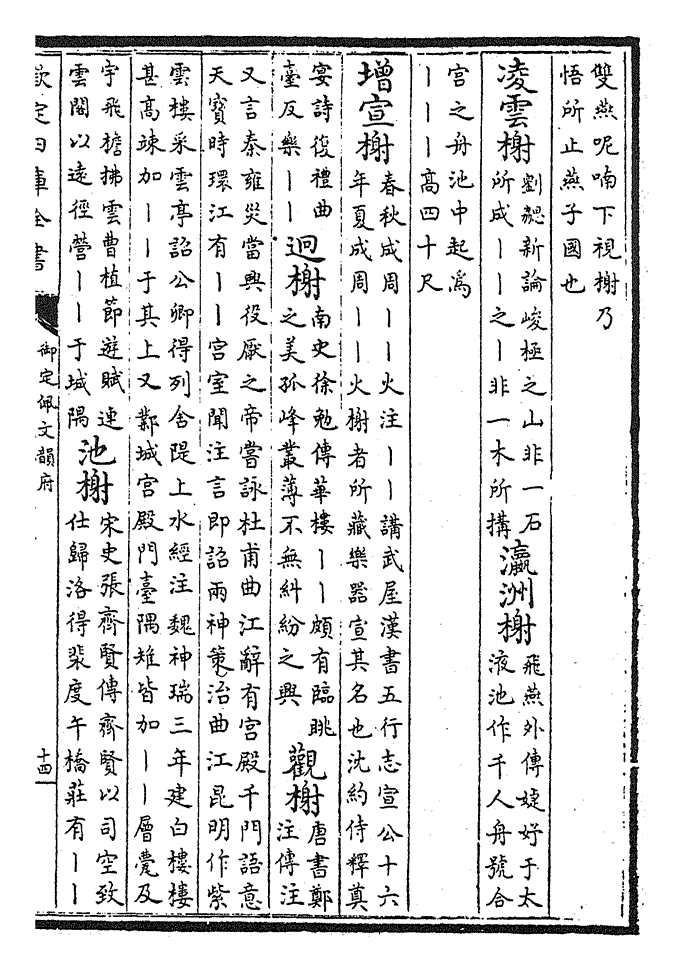 雙燕呢喃下視榭乃
悟所止燕子國也
凌雲榭
劉勰新論峻極之山非一石
所成丨丨之丨非一木所搆
瀛洲榭
飛燕外傳婕妤于太
液池作千人舟號合
宮之舟池中起為
丨丨丨高四十尺
增宣榭
春秋成周丨丨火注丨丨講武屋漢書五行志宣公十六
年夏成周丨丨火榭者所藏樂器宣其名也沈約侍釋奠
宴詩復禮曲
臺反樂丨丨
迥榭
南史徐勉傳華樓丨丨頗有臨眺
之美孤峰叢薄不無糾紛之興
觀榭
唐書鄭
注傳注
又言秦雍災當興役厭之帝嘗詠杜甫曲江辭有宮殿千門語意
天寶時環江有丨丨宮室聞注言即詔兩神策治曲江昆明作紫
雲樓采雲亭詔公卿得列舍隄上水經注魏神瑞三年建白樓樓
甚高竦加丨丨于其上又鄴城宮殿門臺隅雉皆加丨丨層甍及
宇飛檐拂雲曹植節遊賦連
雲閣以遠徑營丨丨于城隅
池榭
宋史張齊賢傳齊賢以司空致
仕歸洛得裴度午橋莊有丨丨
欽定四庫全書
御定佩文韻府
十四